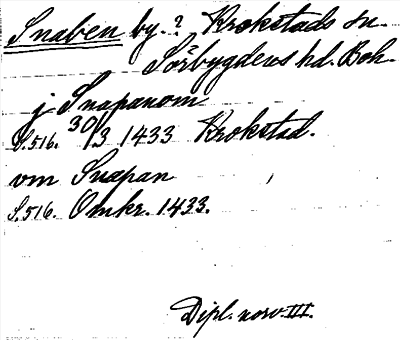 Snaben by.? Krokstads sn.
Sörbygdens hd. Boh.
j Snapanom
S. 516. 30/3 1433 Krokstad.
vm Snapan
S. 516. Omkr. 1433.
Dipl. norv. III.